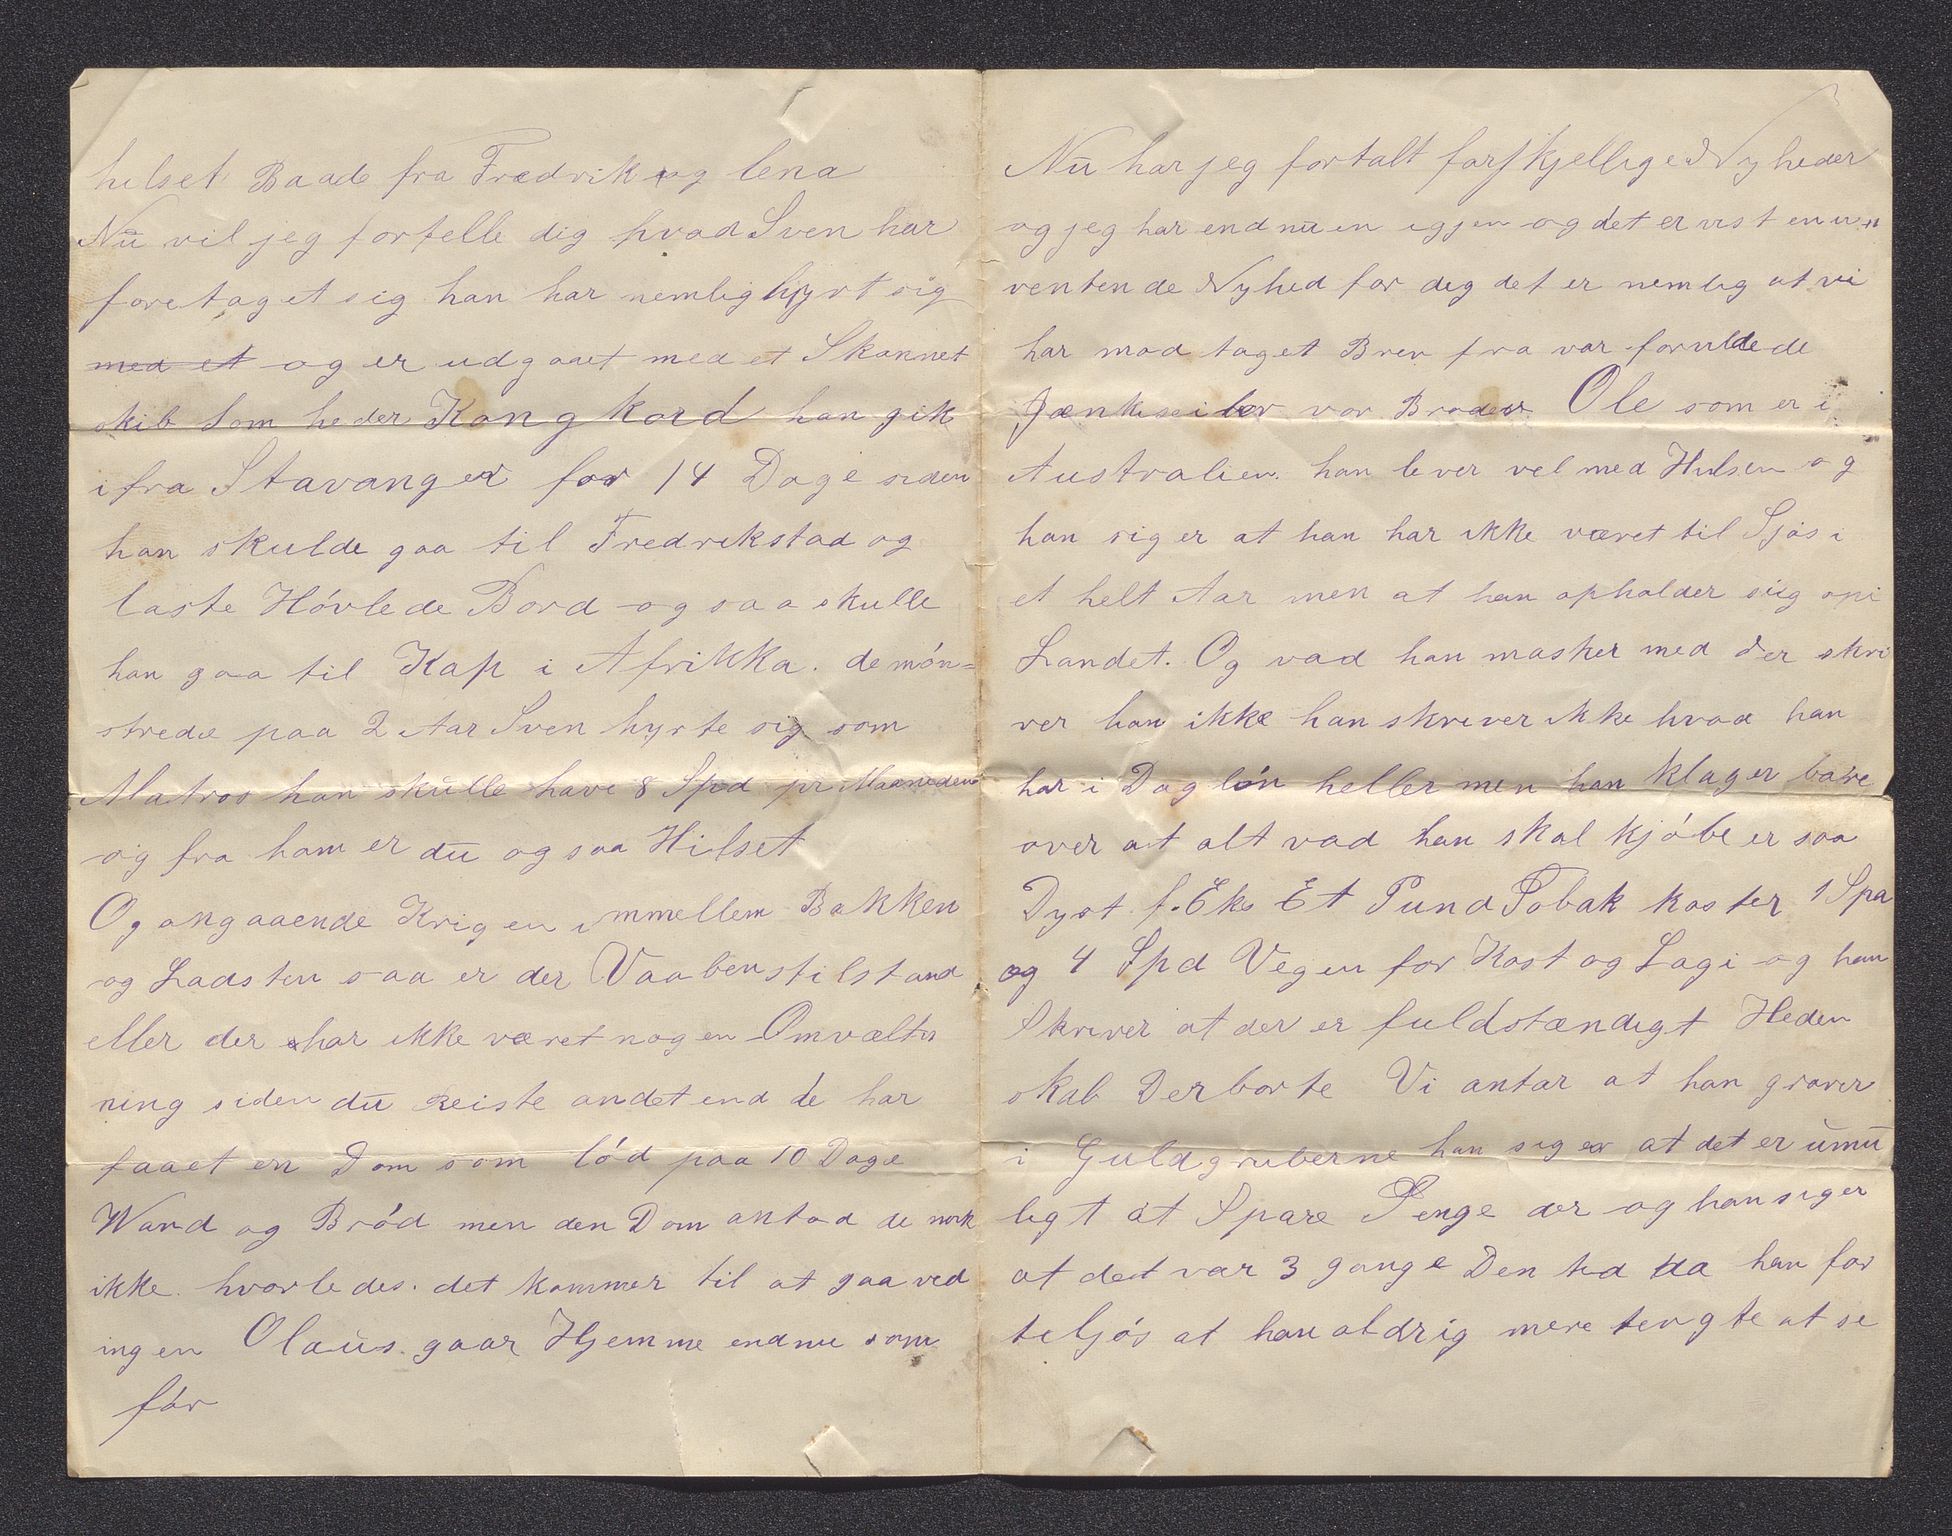 helset Baade fra Fredrik og lena
Nu vil jeg fortelle dig hvad Sven har
foretaget sig han har nemlig hyrt sig
med et og er udgaaet med et Skonnet
skib Som heder Kongkord han gik
ifra Stavanger for 14 Dage siden
han skulde gaa til Fredrikstad og
laste Hóvlede Bord og saa skulle
han gaa til Kap i Afrikka. de món=
strede paa 2 Aar Sven hyrte sig som
Matros han skulle have 8 Spd pr Maaneden
og fra ham er du ogsaa Hilset
Og angaaende Krigen immellem Bakken
og Ladsten saa er der Vaabenstilstand
eller der har ikke været nogen Omvælt
ning siden du Reiste andet end de har
faaet en Dom som lód paa 10 Dage
Wand og Bród men den Dom antod de nok
ikke. hvorledes. det kommer til at gaa ved
ingen Olaus. gaar Hjemme endnu som
fór
Nu har jeg fortalt forskjellige Nyheder
og jeg har endnu en igjen og det er vist en uen
ventende Nyhed for dig det er nemlig at vi
har mod taget Brev fra vor foruldede
Jænkeseiler vor Broder Ole som er i
Australien. han lever vel med Hulsen og
han siger at han har ikke været til Sjøs i
et helt Aar men at han opholder siig opi
Landet. Og vad han masker med der skri
ver han ikke han skriver ikke hvad han
har i Daglón heller men han klager bare
over at alt vad han skal kjóbe er saa
Dyrt f. Eks Et Pund Tobak koster 1 Spd
og 4 Spd Vegen for Kost og Lagi og han
Skriver at der er fuldstændigt Heden
skab Derborte Vi antar at han graver
i Guldgruberne han siger at det er umu
ligt at Spare Penge der og han siger
at det var 3 gange Den tid da han for
teljós at han aldrig mere tengte at se